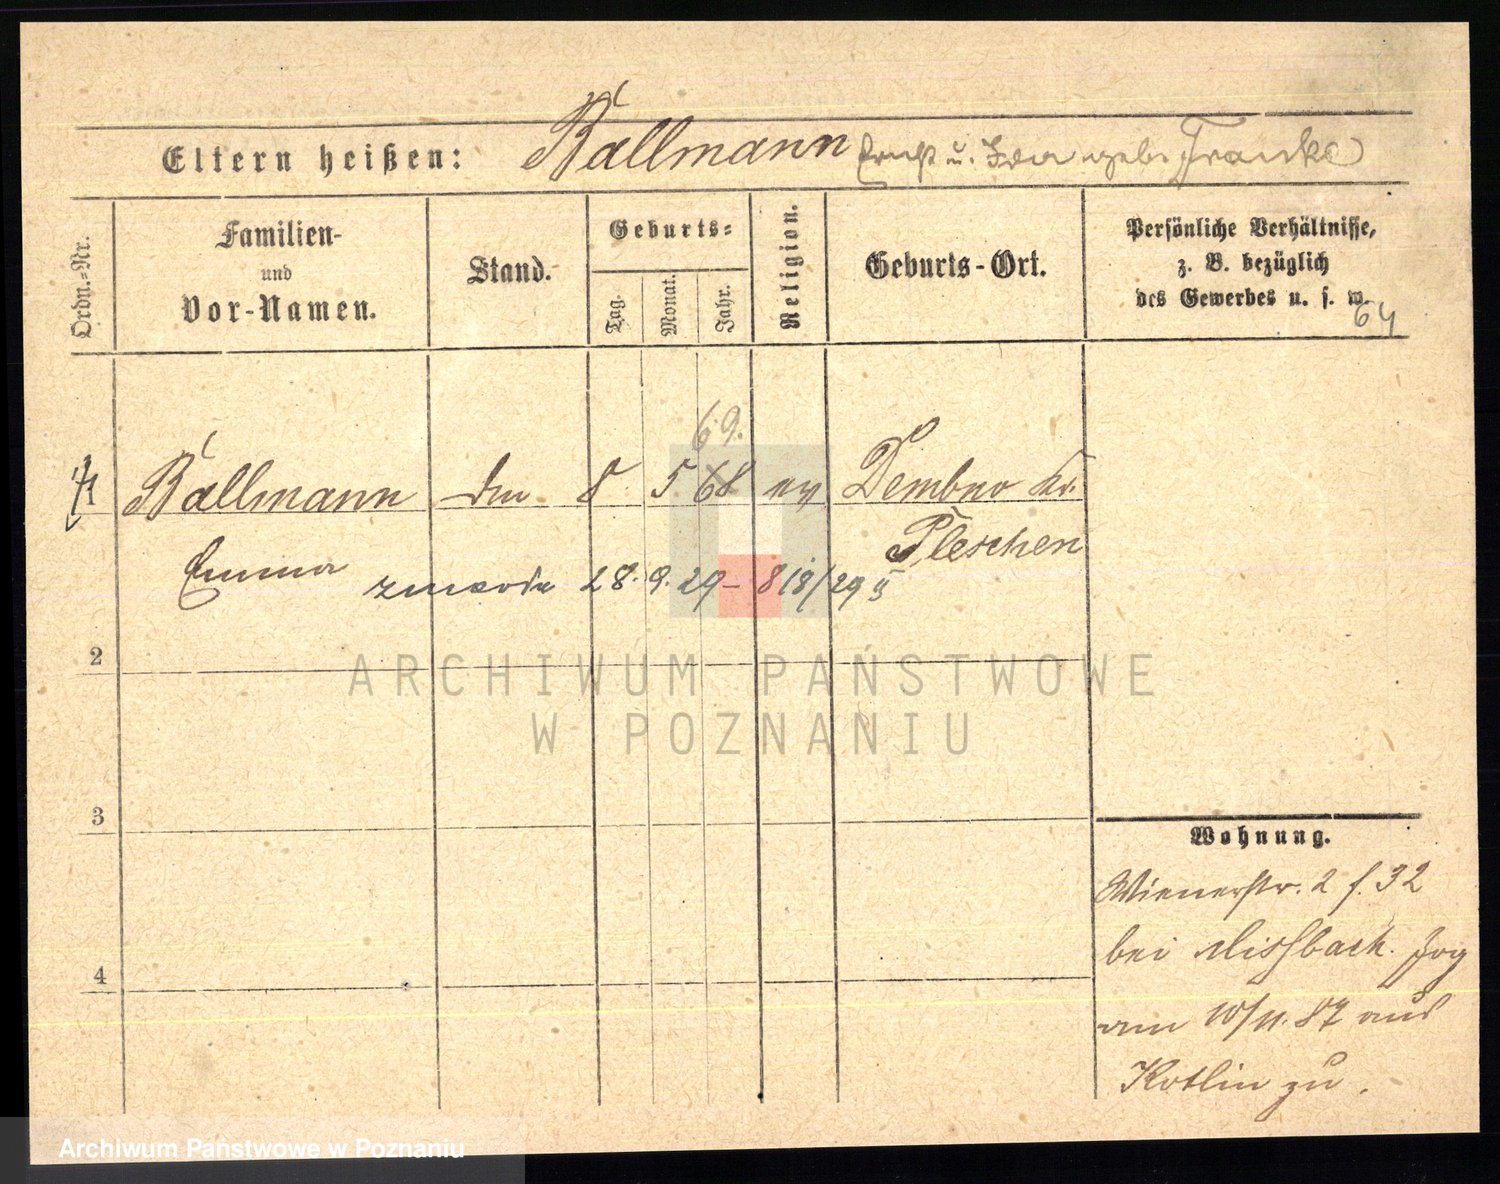 Eltern heißen: Ballmann Ernst u. Ida geb. Franke
Ordn.-Nr.
Familien-
und
Vor-Namen.
Stand.
Geburts-
Tag.
Monat.
Jahr.
Religion.
Geburts-Ort.
Persönliche Verhältnisse,
z. B. bezüglich
des Gewerbes u. s. w.
64
69.
1 Ballmann 8 5 68 ev Dembno Kr.
Pleschen
Emma
zmarła 28. 9. 29 – 818/29 II
2
3
4
Wohnung.
Wienerstr. 2 f. 32
bei Missbach. Zog
am 10/11. 87 aus
Kotlin zu.
ARCHIWUM PAŃSTWOWE
W POZNANIU
Archiwum Państwowe w Poznaniu